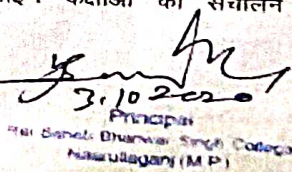 कक्षाओं का संचालन
3.10.2020
Principal
Bhanwar Singh College
Nasrullaganj (M.P.)